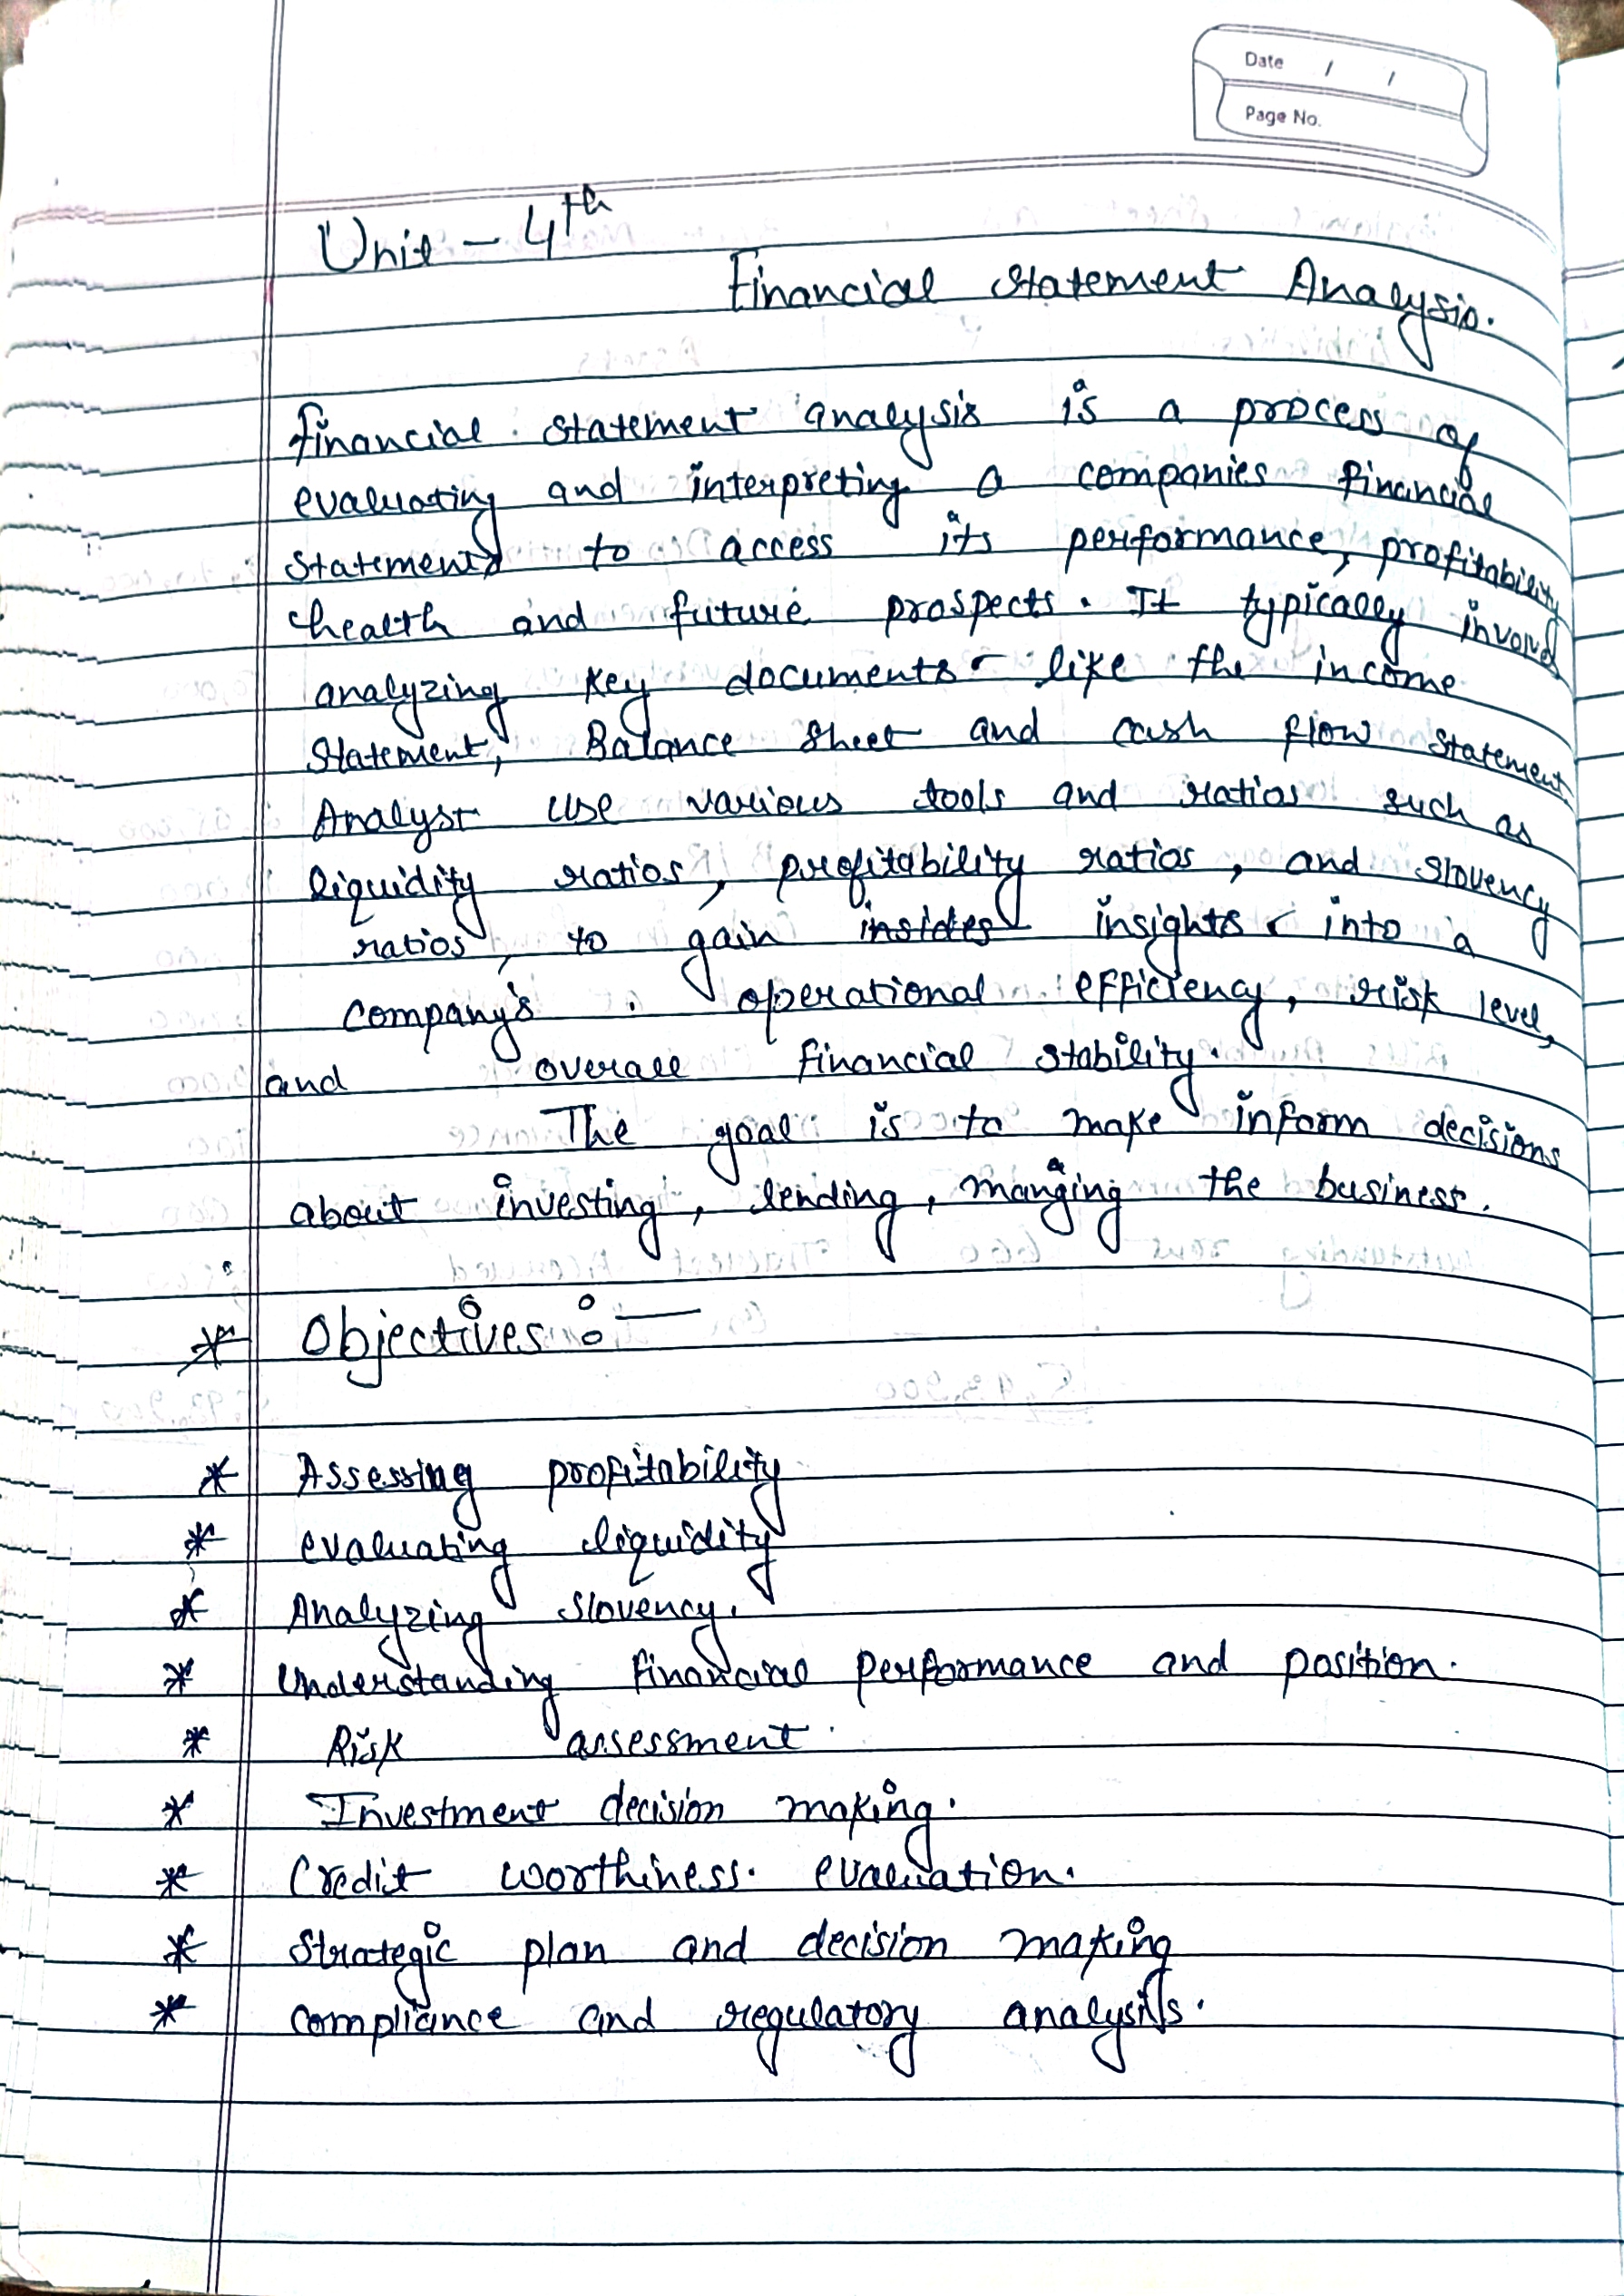 Date / /
Page No.
Unit - 4th
Financial Statement Analysis.
financial statement analysis is a process of
evaluating and interpreting a companies financial
statements to access its performance, profitability
health and future prospects. It typically involve
analyzing key documents like the income
statement, Balance sheet and cash flow statement
Analyst use various tools and ratios such as
liquidity ratios, profitability ratios, and slovency
ratios, to gain insides insights into a
company's operational efficiency, risk level,
and overall financial stability.
The goal is to make inform decisions
about investing, lending, manging the business.
* Objectives :-
* Assessing profitability
* evaluating liquidity
* Analyzing slovency.
* Understanding financial performance and position.
* Risk assessment.
* Investment decision making.
* Credit worthiness. evaluation.
* Strategic plan and decision making
* compliance and regulatory analysis.